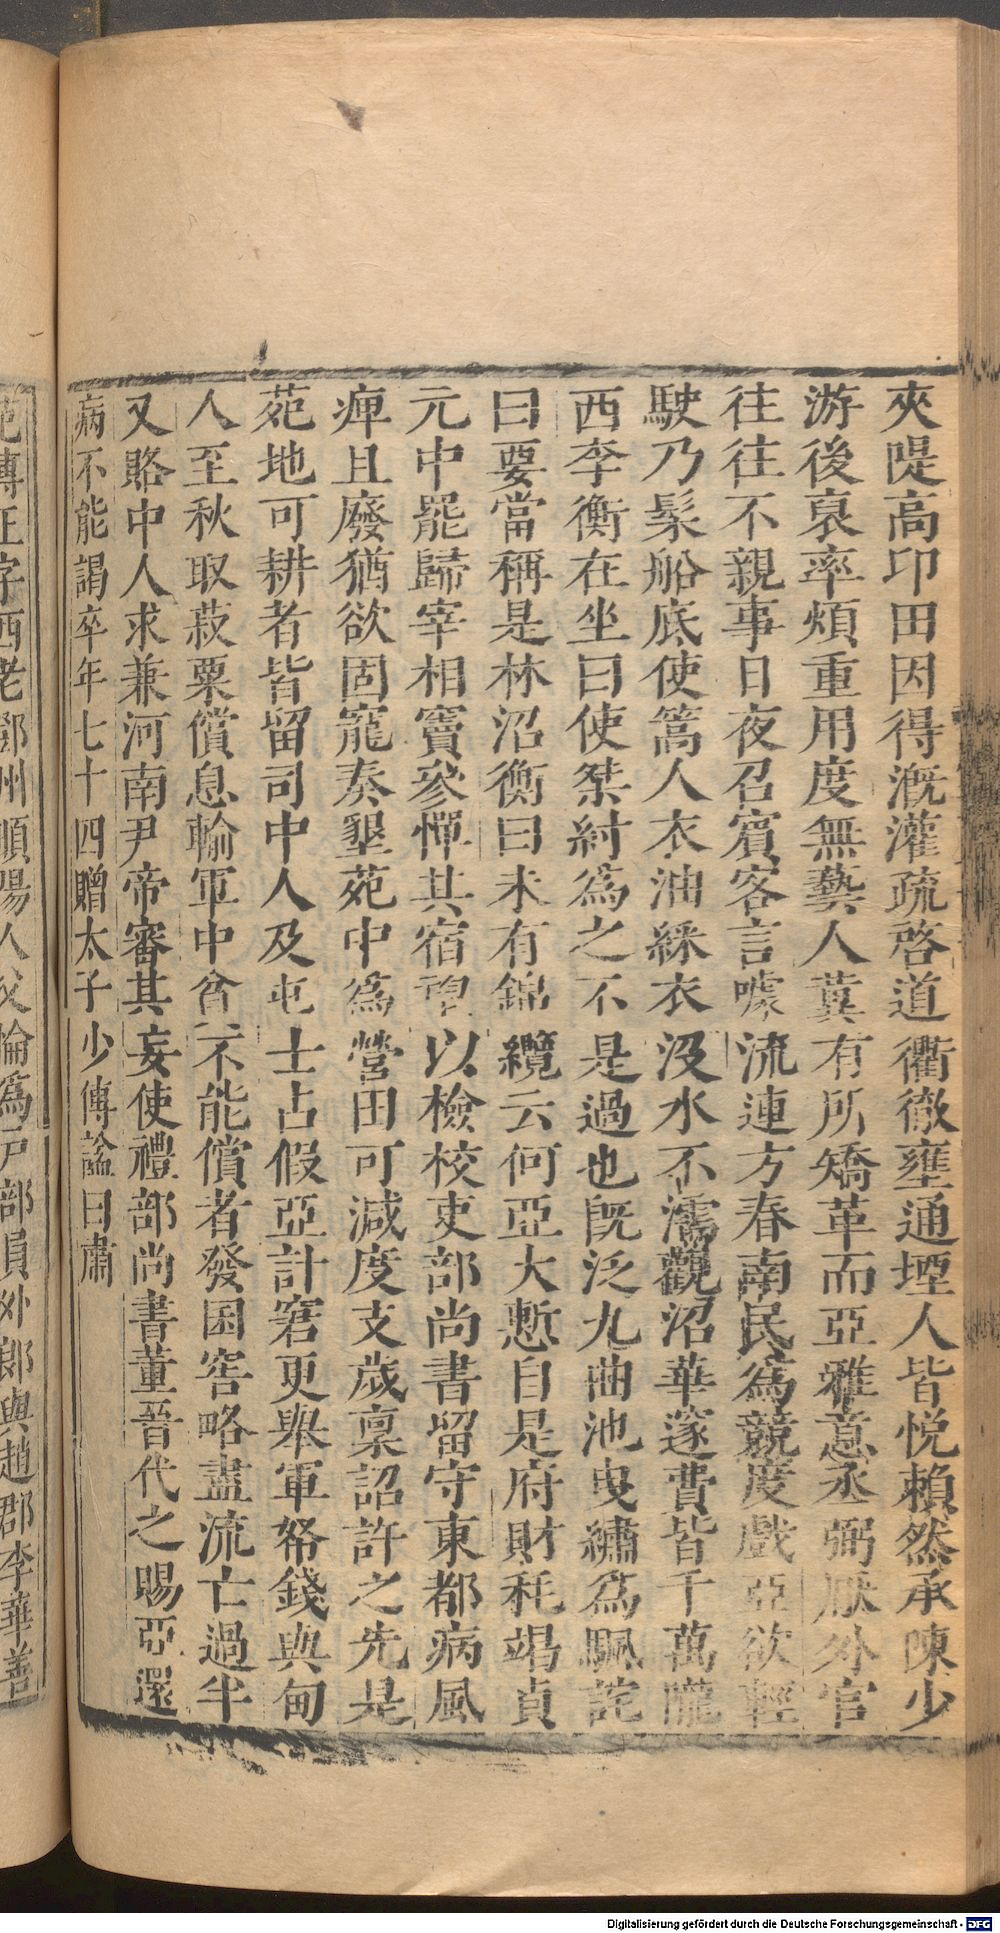 夾隄高卬田因得漑灌疏啓道衢徹壅通堙人皆悅賴然承陳少
游後裒率煩重用度無藝人冀有所矯革而亞雅意丞弼厭外官
往往不親事日夜召賓客言噱流連方春南民爲競度戲亞欲輕
駛乃髤船底使篙人衣油綵衣沒水不濡觀沼華邃費皆千萬隴
西李衡在坐曰使桀紂爲之不是過也旣泛九曲池曳繡爲颿詫
曰要當稱是林沼衡曰未有錦纜云何亞大慙自是府財耗竭貞
元中罷歸宰相竇參憚其宿望以檢校吏部尚書留守東都病風
痺且廢猶欲固寵奏墾苑中爲營田可減度支歲稟詔許之先是
苑地可耕者皆留司中人及屯士占假亞計窘更舉軍帑錢與甸
人至秋取菽粟償息輸軍中貧不能償者發囷窖略盡流亡過半
又賂中人求兼河南尹帝審其妄使禮部尚書董晉代之賜亞還
病不能謁卒年七十四贈太子少傅謚曰肅
范傳正字西老鄧州順陽人父愉爲戸部員外郎與趙郡李華善
Digitalisierung gefördert durch die Deutsche Forschungsgemeinschaft - DFG